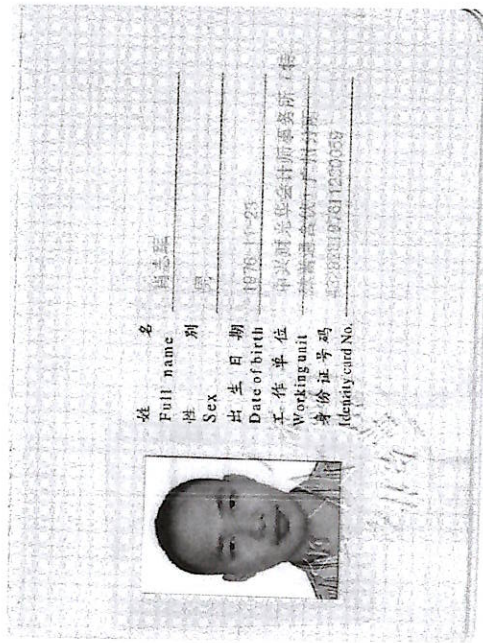 姓名
Full name
肖志军
性别
Sex
男
出生日期
Date of birth
1976-11-23
工作单位
Working unit
中兴财光华会计师事务所（特
殊普通合伙）广州分所
身份证号码
Identity card No.